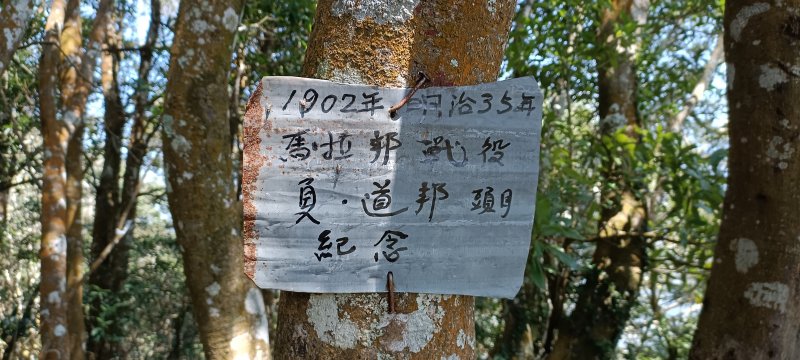 1902年 明治35年
馬拉邦戰役
負·道邦頭目
紀念